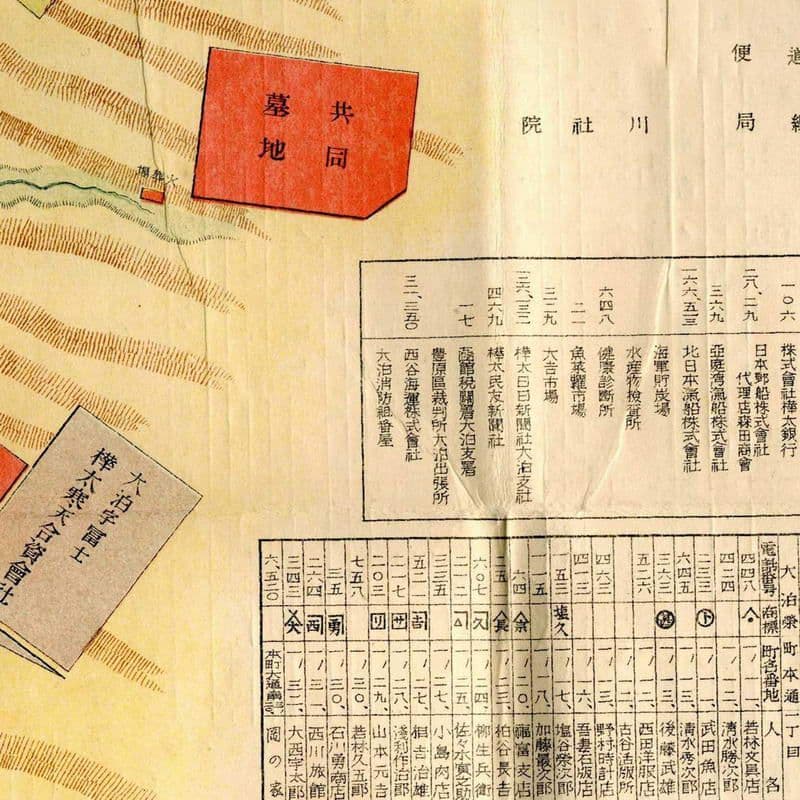 共同
墓地
火葬場
便
局
川
社
院
一〇六 株式會社樺太銀行
二八、二九 日本郵船株式會社
代理店森田商會
三六九 亞庭灣漁船株式會社
一六六、五三 北日本漁船株式會社
海軍貯炭場
水産物檢査所
六四八 健康診斷所
二一 魚菜糶市場
三二九 大吉市場
三六、一三二 樺太日日新聞社大泊支社
四六九 樺太民友新聞社
一七
豐原區裁判所大泊出張所
三一、三五〇 西谷海運株式會社
大泊消防組番屋
大泊字冨士
樺太寒天合資會社
大泊榮町本通一丁目
電話番號 商標 町名番地 人名
四四八 一ノ一 若林文具店
四二四 一ノ二 清水勝次郎
二三三 一ノ二 武田魚店
六四五 一ノ三 清水秀次郎
三六三 一ノ三 後藤武雄
五二六 一ノ 西田洋服店
一ノ 古谷活版所
四六三 一ノ 野村時計店
四一三 一ノ六 吾妻石版店
一五三 塩久 一ノ七 塩谷榮次郎
一五 一ノ一八 加藤最次郎
六四 余 一ノ 福富支店
二五 長 一ノ三 柏谷長吉
六〇七 久 一ノ二四 柳生兵衛
二一二 一ノ五
三三五 一ノ二七 小島肉店
五二一 吉 一ノ七 相吉治雄
二一七 サ 一ノ二八 淺利作治郎
二〇三 リ 一ノ二九 山本元吉
七五八 一ノ三〇 若林久五郎
三五 勇 一ノ三〇 石川勇商店
二六四 西 一ノ三一 西川旅館
三四三 大 一ノ三一 大西宇太郎
六、五二〇 岡の家